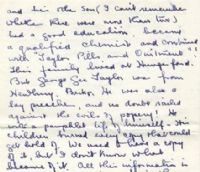 and his other son (I can't remember
whether there were more than two)
had a good education, became
a qualified chemist and combined
with Taylor Pills and Ointment.
This family lived at Hungerford.
But George Sir Taylor was from
Newbury, Berks. He was also a
lay preacher, and no doubt railed
against the evils of popery! He
wrote a pamphlet life of himself. His
children burned every copy that could
get hold of. We used to have a copy
of it, but I don't know what
became of it. All this information is